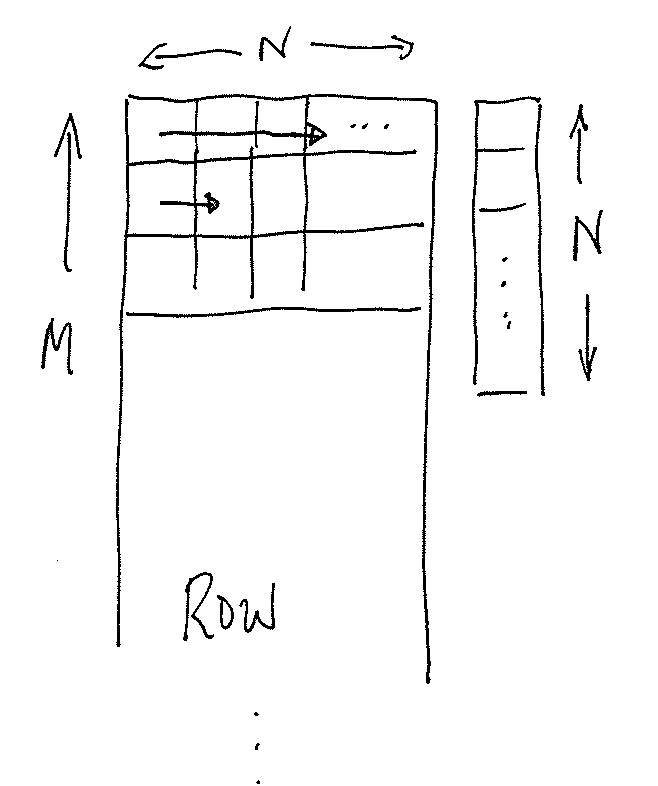 N
...
M
N
Row